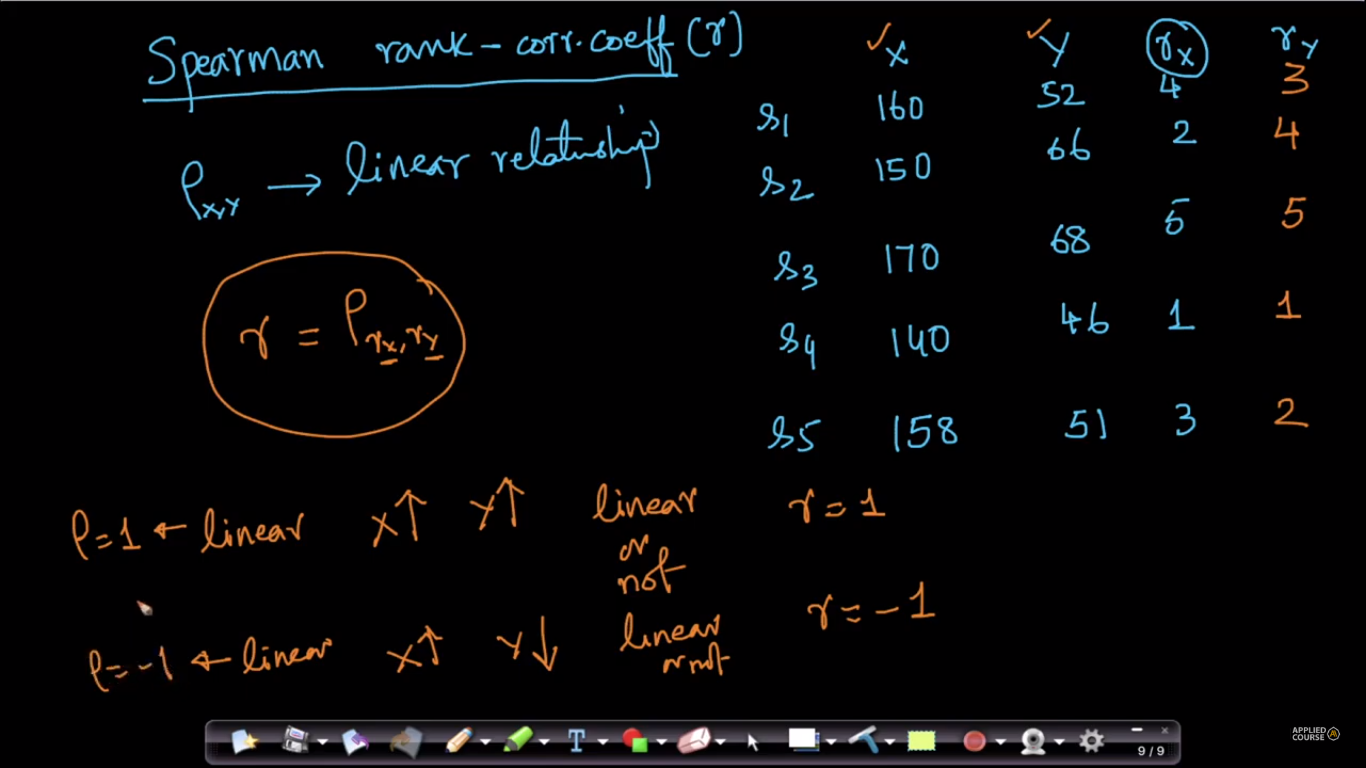 Spearman rank-corr.coeff (r)
ρx,y → linear relationship
r = ρrx,ry
X Y rx ry
s1 160 52 4 3
s2 150 66 2 4
s3 170 68 5 5
s4 140 46 1 1
s5 158 51 3 2
ρ=1 ← linear X↑ Y↑ linear or not r=1
ρ=-1 ← linear X↑ Y↓ linear or not r=-1
T
9/9
APPLIED
COURSE